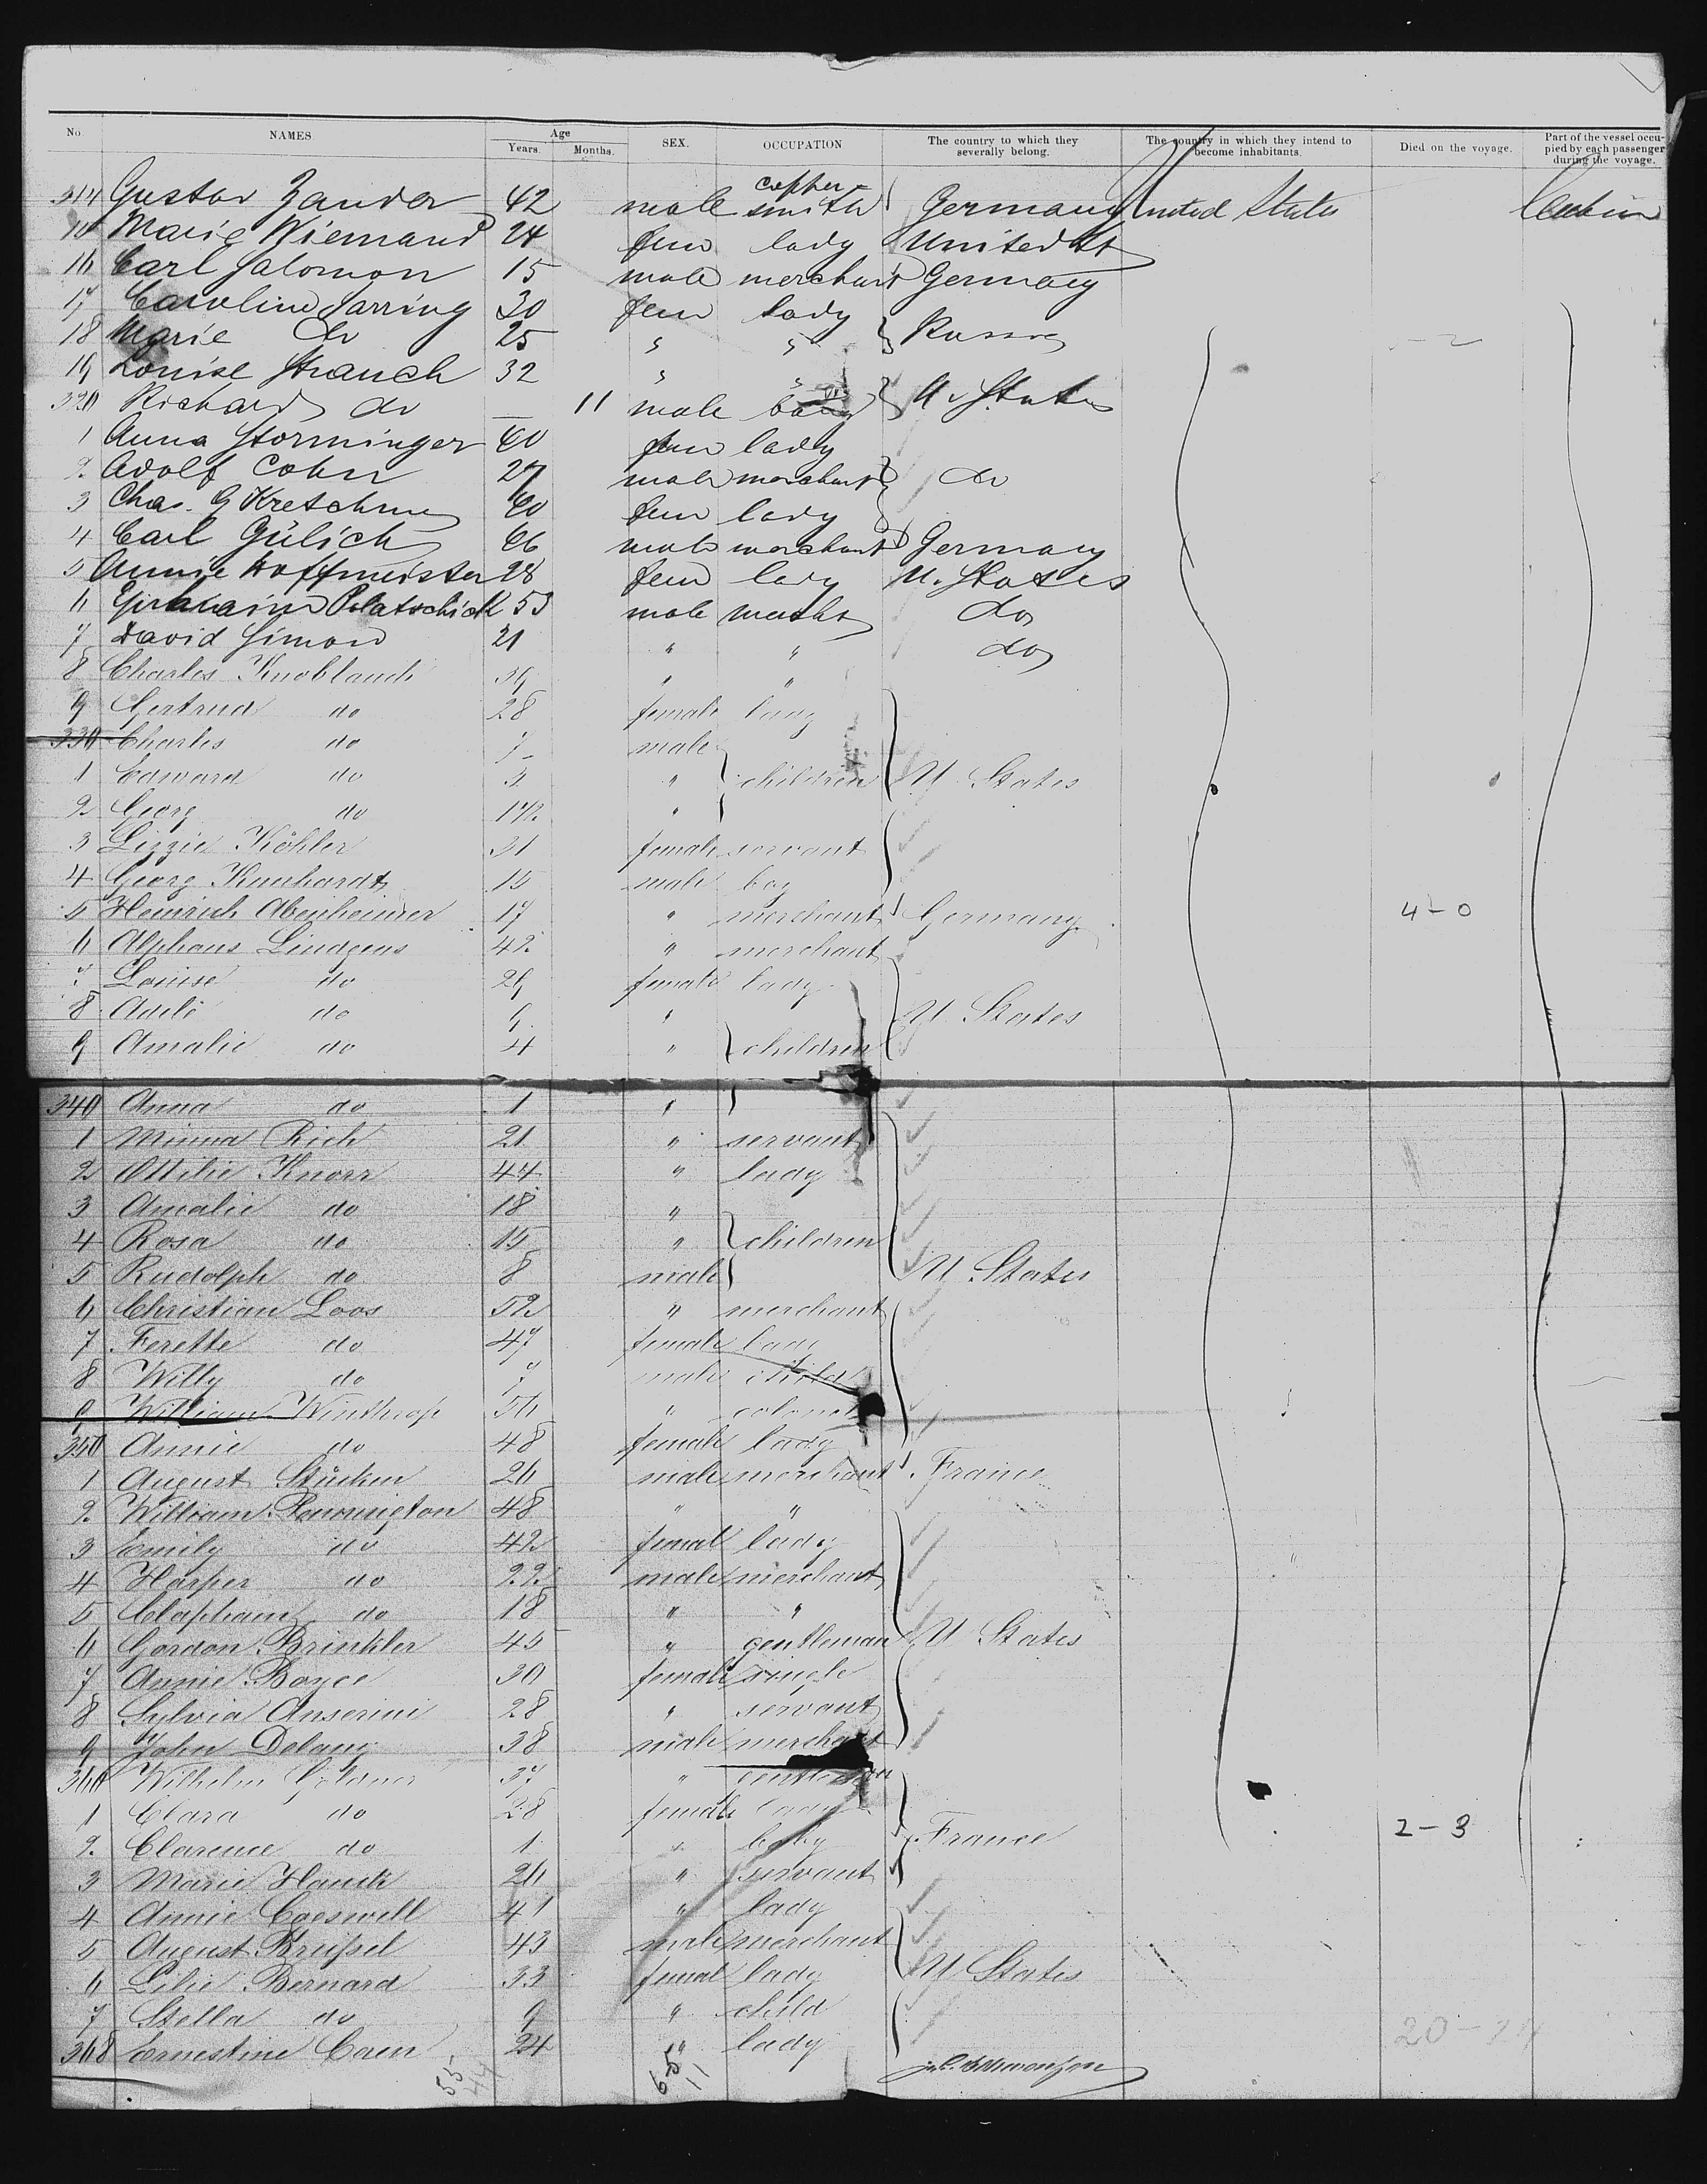 No. NAMES Age Years. Months. SEX. OCCUPATION The country to which they severally belong. The country in which they intend to become inhabitants. Died on the voyage. Part of the vessel occupied by each passenger during the voyage.
314 Gustav Zander 42 male copper-smith Germany United States Cabin
15 Marie Wiemand 24 fem lady United St
16 Carl Salomon 15 male merchant Germany
17 Caroline Sarring 30 fem lady
18 Marie do 25 " " Russia
19 Louise Strauch 32 " "
320 Richard do — 11 male U. States
1 Anna Storminger 60 fem lady
2 Adolf Cohn 27 male merchant do
3 Chas. G Kretschmer 60 fem lady
4 Carl Gülich 66 male merchant Germany
5 Annie Hoffmeister 28 fem lady U. States
6 Platschick 53 male do
7 David Simon 21 " " do
8 Charles Knoblauch 39 " "
9 Gertrud do 28 female lady
330 Charles do 7 male
1 Edward do 3 " children U. States
2 Georg do 1 1/2 "
3 Lizzie Köhler 31 female servant
4 Georg Kunhardt 15 male boy
5 Heinrich Abenheimer 17 " merchant Germany 4-0
6 Alphons Lindgens 42 " merchant
7 Louise do 29 female lady
8 Adele do 9 " U. States
9 Amalie do 4 " children
340 Anna do 1 "
1 Minna Rich 21 " servant
2 Ottilie Knorr 44 " lady
3 Amalie do 18 "
4 Rosa do 15 " children
5 Rudolph do 8 male U. States
6 Christian Loos 52 " merchant
7 Ferette do 47 female lady
8 Willy do 7 male child
9 William Winthrop 56 " colonel
350 Annie do 48 female lady
1 August Stücken 26 male merchant France
2 William 48 " "
3 Emily do 42 femal lady
4 Harper do 22 male merchant
5 Clapham do 18 " "
6 Gordon Brinkler 45 " gentleman U. States
7 Annie Boyce 30 female single
8 Sylvia Anserini 28 " servant
9 John Delany 38 male merchant
360 Wilhelm 37 " gentleman
1 Clara do 28 female lady
2 Clarence do 1 " baby France 2-3
3 Marie Hauck 26 " servant
4 Annie Coeswell 41 " lady
5 August Breißel 43 male merchant
6 Lilie Bernard 33 femal lady U. States
7 Stella do 9 " child
368 Ernestine Caen 24 " lady
55 44 65 11